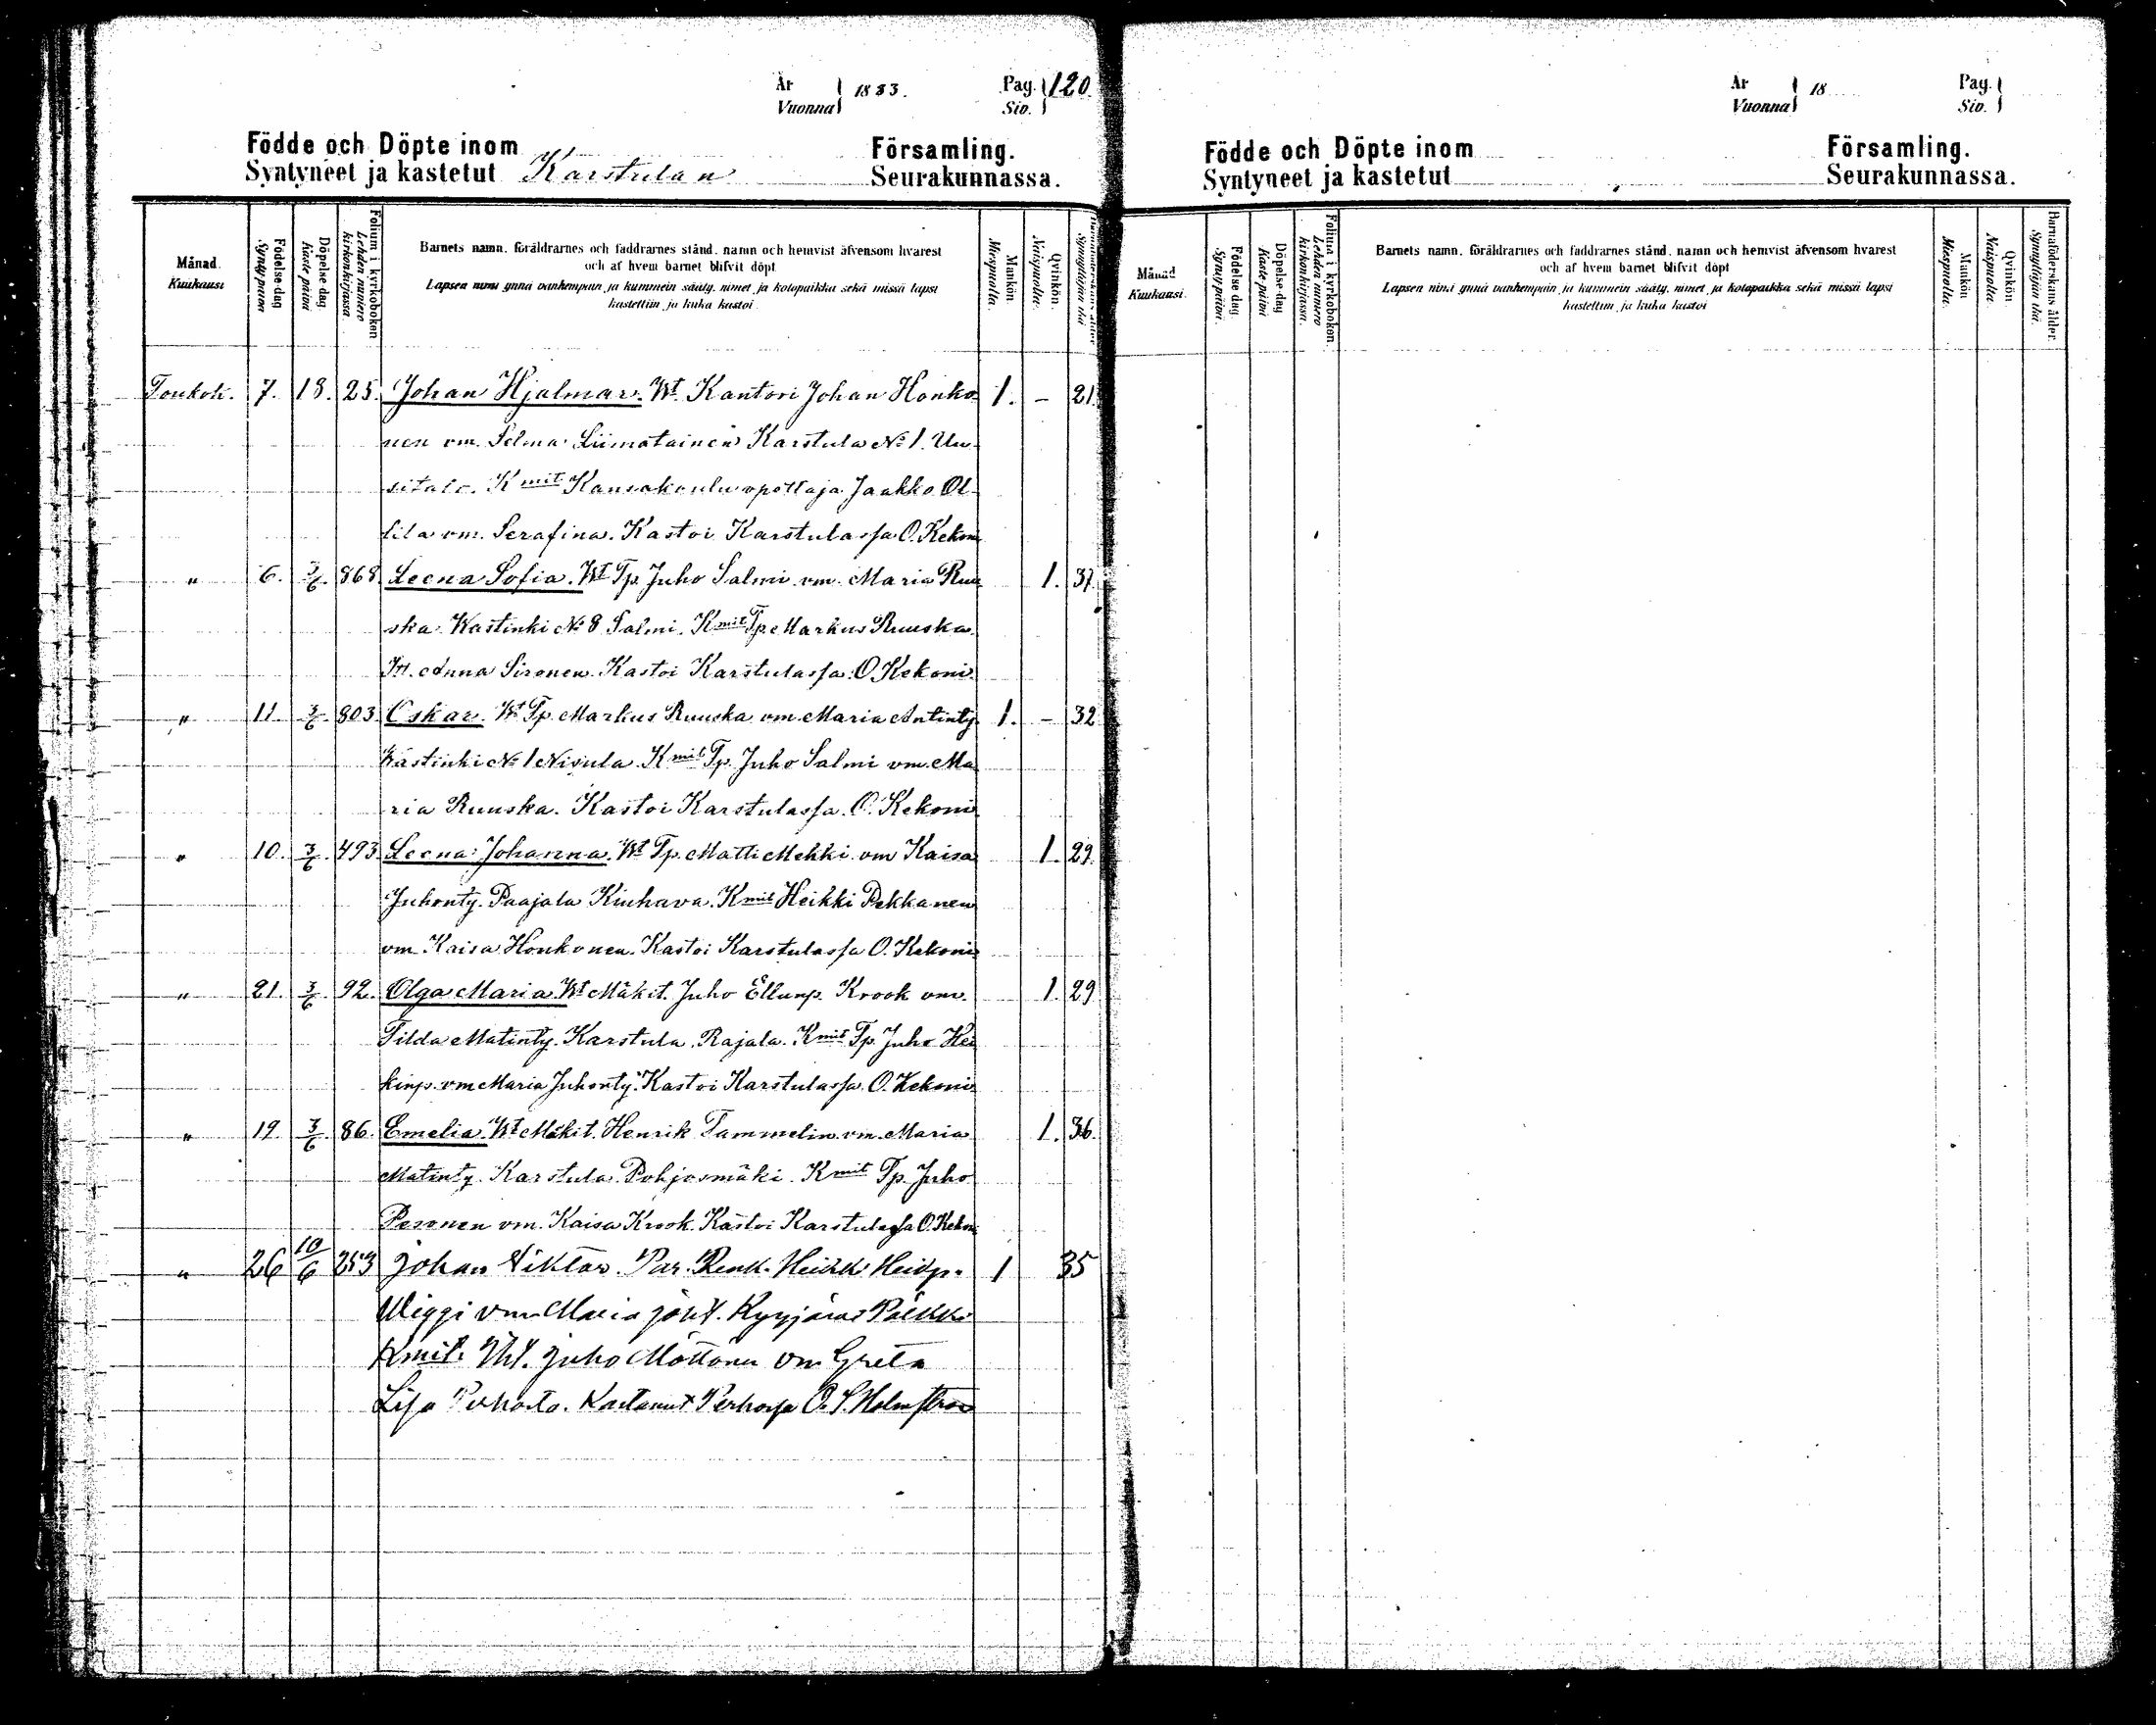 År Vuonna 1883. Pag. Siv. 120.
Födde och Döpte inom Församling.
Syntyneet ja kastetut Karstulan Seurakunnassa.
Månad. Kuukausi
Födelse-dag Syntypäivä
Döpelse-dag Kastepäivä
Folium i kyrkoboken Lehden numero kirkonkirjassa
Barnets namn, föräldrarnes och faddrarnes stånd, namn och hemvist äfvensom hvarest
och af hvem barnet blifvit döpt
Lapsen nimi ynnä vanhempain ja kummein sääty, nimet ja kotopaikka sekä missä lapsi
kastettiin ja kuka kastoi.
Mankön Miespuolia.
Qvinkön Naispuolia.
Toukok. 7. 18. 25. Johan Hjalmar. Wt. Kantori Johan Honko 1. – 21.
nen vm. Selma Liimatainen Karstula No 1. Uu
sitalo. Kmit Kansakoulu opettaja Jaakko Ol
lila vm. Serafina. Kastoi Karstulassa O. Kekoni
" 6. 3/6. 868. Leena Sofia. Wt Tp. Juho Salmi vm. Maria Ruu 1. 37.
ska Wastinki No 8 Salmi. Kmit Tp. Markus Ruuska
It. Anna Sironen. Kastoi Karstulassa O. Kekoni.
" 11. 3/6. 803. Oskar. Wt. Tp. Markus Ruuska vm. Maria Antinty 1. – 32
Wästinki No 1 Nisula. Kmit Tp. Juho Salmi vm. Ma
ria Ruuska. Kastoi Karstulassa. O. Kekoni
" 10. 3/6. 493. Leena Johanna. Wt Tp. Matti Mehki vm Kaisa 1. 29.
Juhonty. Paajala Kiuhava. Kmit Heikki Pekkanen
vm. Kaisa Honkonen. Kastoi Karstulassa O. Kekoni
" 21. 3/6. 92. Olga Maria. Wt Mäkit. Juho Ellunp. Krook vm. 1. 29
Tilda Matinty. Karstula. Rajala. Kmit Tp. Juho Hei
kinp. vm Maria Juhonty. Kastoi Karstulassa. O. Kekoni
" 19. 3/6. 86. Emelia. Wt Mäkit. Henrik Tammelin vm. Maria 1. 36.
Matinty. Karstula. Pohjosmäki. Kmit Tp. Juho
Pesonen vm. Kaisa Krook. Kastoi Karstulassa O. Kekoni
" 26 10/6 253 Johan Viktor. Par. Renk. Heikki Heikp. 1 35
vm Maria
Kmit. Juho Möttönen vm Greta
Lisa Perhosta. Kastanut Perhossa O. S. Holmström
År Vuonna 18 Pag. Siv.
Födde och Döpte inom Församling.
Syntyneet ja kastetut Seurakunnassa.
Månad Kuukausi.
Födelse-dag Syntypäivä.
Döpelse-dag Kastepäivä
Folium i kyrkoboken. Lehden numero kirkonkirjassa.
Barnets namn, föräldrarnes och faddrarnes stånd, namn och hemvist äfvensom hvarest
och af hvem barnet blifvit döpt
Lapsen nimi ynnä vanhempain ja kummein sääty, nimet ja kotopaikka sekä missä lapsi
kastettiin ja kuka kastoi
Mankön Miespuolia.
Qvinkön Naispuolia.
Barnaföderskans ålder. Synnyttäjän ikä.